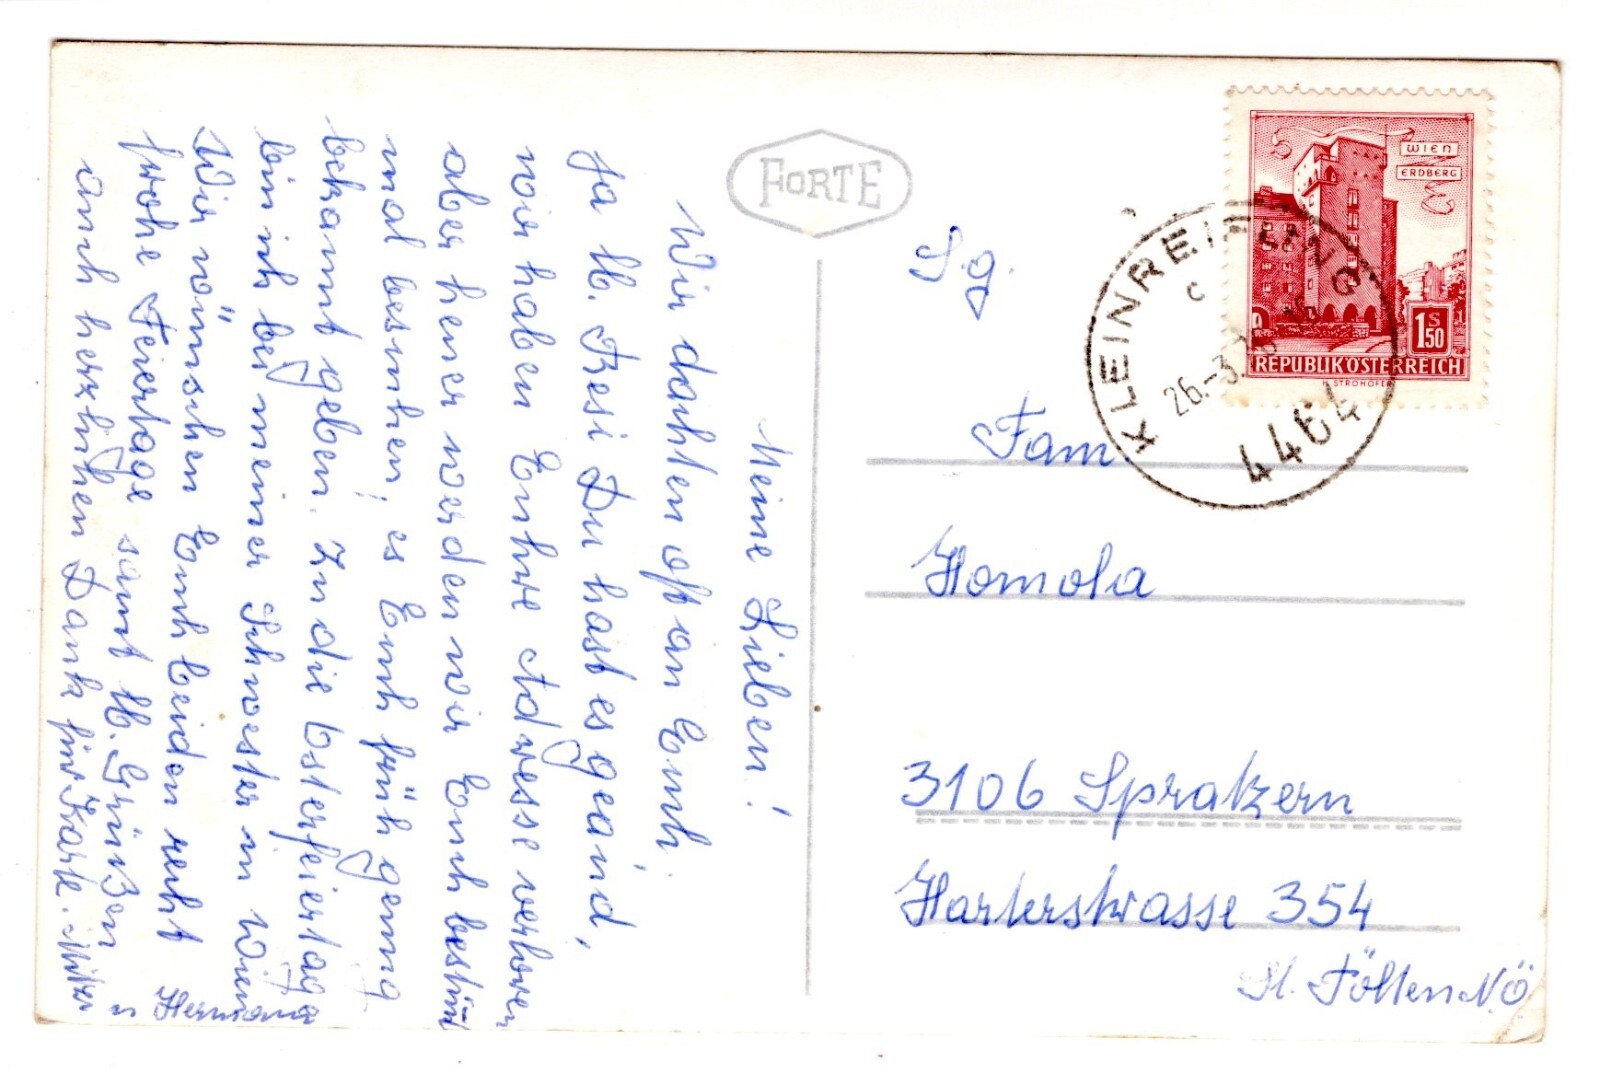 Meine Lieben!
Wir dachten oft an Euch.
Ja lb. Resi Du hast es geaind,
wir haben Euhre Adresse verloren
aber heuer werden wir Euch bestim
mal besuchen, es Euch früh genug
bekannt geben. In die Osterfeiertage
bin ich bei meiner Schwester in Wien
Wir wünschen Euch beiden recht
frohe Feiertage samt lb. Grüßen
auch herzlichen Dank für Karte.
u Hermann
FORTE
S.g.
Fam
Homola
3106 Spratzern
Harterstrasse 354
St. Pölten NÖ
WIEN
ERDBERG
1 S 50
REPUBLIK ÖSTERREICH
STROHOFER
KLEINREIFLING
c
26.-3.
4464